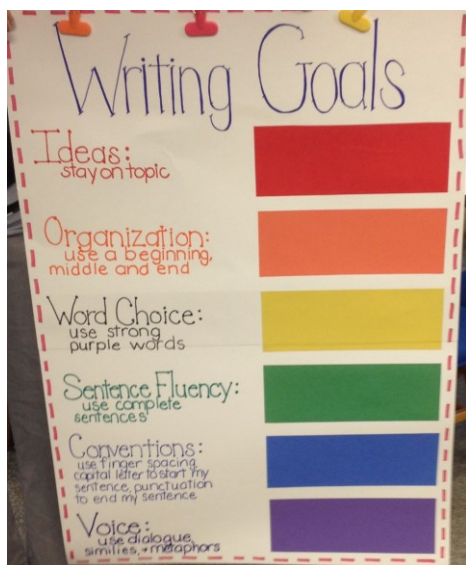 Writing Goals
Ideas:
stay on topic
Organization:
use a beginning,
middle and end
Word Choice:
use strong
purple words
Sentence Fluency:
use complete
sentences
Conventions:
use finger spacing,
capital letter to start my
sentence, punctuation
to end my sentence
Voice:
use dialogue,
similies, + metaphors